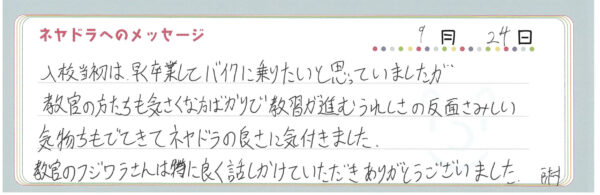 ネヤドラへのメッセージ
9月 24日
入校当初は、早く卒業してバイクに乗りたいと思っていましたが
教官の方たちも気さくな方ばかりで教習が進むうれしさの反面さみしい
気持ちもでてきてネヤドラの良さに気付きました.
教官のフジワラさんは特に良く話しかけていただきありがとうございました.